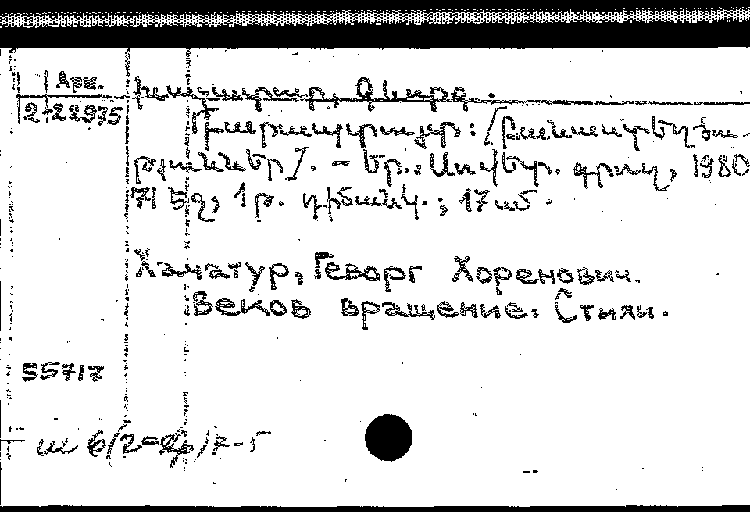 Арм.
2-22975
Խաչատուր, Գևորգ.
[Բանաստեղծու-
թյուններ]. – Եր.: Սովետ. գրող, 1980
71 էջ, 1 թ. դիմանկ.; 17 սմ.
Хачатур, Геворг Хоренович.
Веков вращение. Стихи.
55717